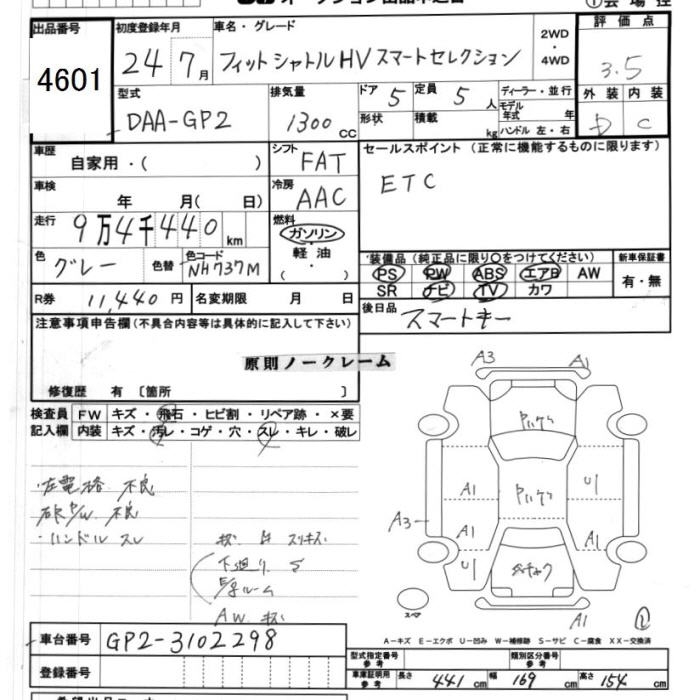 出品番号
4601
初度登録年月
24 7月
車名・グレード
フィットシャトルHV スマートセレクション
2WD・4WD
評価点
3.5
外装 内装
D C
型式
DAA-GP2
排気量
1300 cc
ドア 5
形状
定員 5 人
積載 kg
ディーラー・並行
モデル年式 年
ハンドル 左・右
車歴
自家用・( )
シフト
FAT
車検
年 月( 日)
冷房
AAC
走行
9万4千440km
燃料
ガソリン・軽油・( )
色
グレー
色替
色コード
NH737M
R券 11,440 円
名変期限 月 日
セールスポイント(正常に機能するものに限ります)
ETC
装備品(純正品に限り○をつけてください)
PS PW ABS エアB AW
SR ナビ TV カワ
新車保証書
有・無
後日品
スマートキー
注意事項申告欄(不具合内容等は具体的に記入して下さい)
原則ノークレーム
修復歴 有〔箇所 〕
検査員記入欄
FW キズ・飛石・ヒビ割・リペア跡・×要
内装 キズ・汚レ・コゲ・穴・スレ・キレ・破レ
不良
不良
・ハンドル スレ
スリキズ
下廻り S
ルーム
AW
A3
A1
A1
U1
A1
A1
A3
U1
A1
スペア
A-キズ E-エクボ U-凹み W-補修跡 S-サビ C-腐食 XX-交換済
車台番号
GP2-3102298
登録番号
型式指定番号 参考
類別区分番号 参考
車庫証明用 参考
長さ 441 cm
幅 169 cm
高さ 154 cm